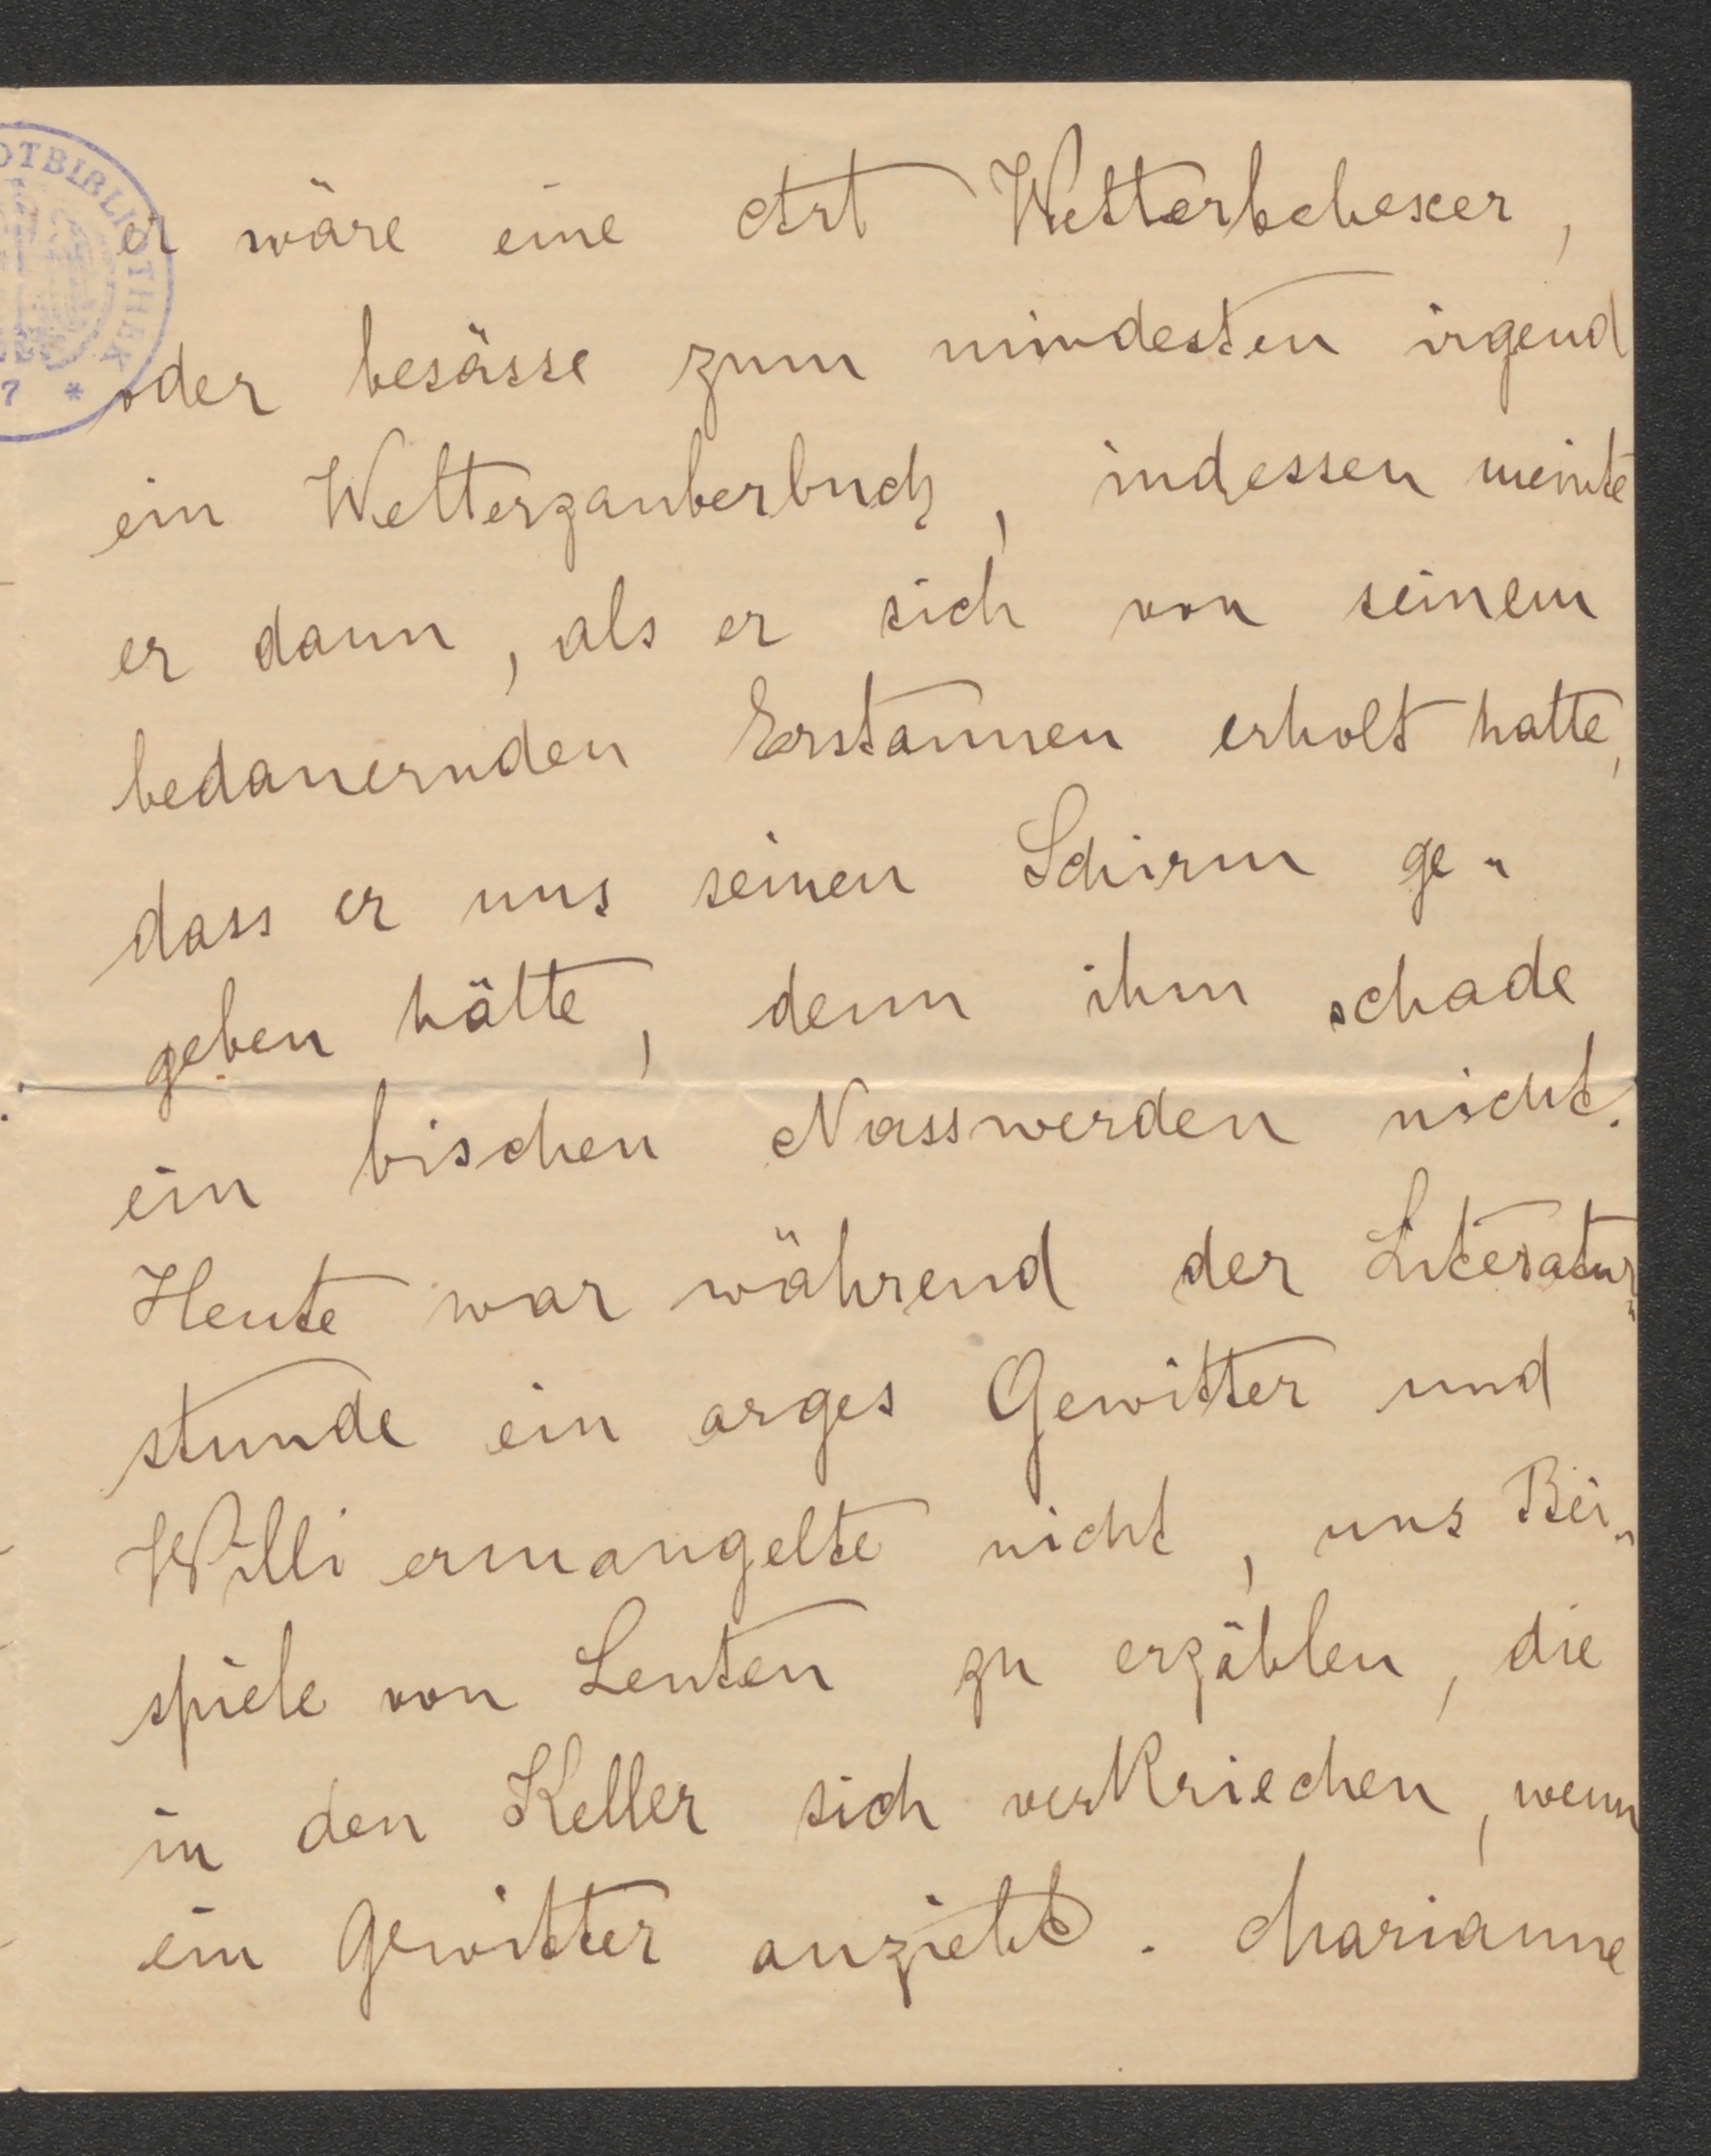 er wäre eine Art Wetterbehexer,
oder besässe zum mindesten irgend
ein Wetterzauberbuch, indessen meinte
er dann, als er sich von seinem
bedauernden Erstaunen erholt hatte,
dass er uns seinen Schirm ge-
geben hätte, denn ihm schade
ein bischen Nasswerden nicht.
Heute war während der Literatur-
stunde ein arges Gewitter und
Willi ermangelte nicht, uns Bei-
spiele von Leuten zu erzählen, die
in den Keller sich verkriechen, wenn
ein Gewitter anzieht. Marianne